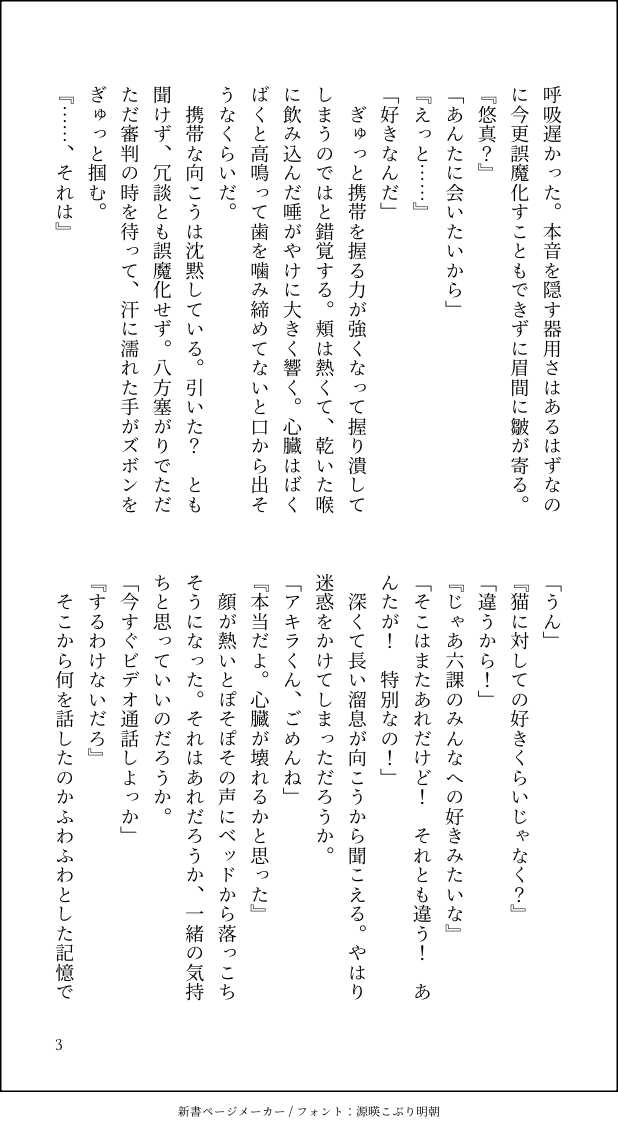 呼吸遅かった。本音を隠す器用さはあるはずなの
に今更誤魔化すこともできずに眉間に皺が寄る。
『悠真？』
「あんたに会いたいから」
『えっと……』
「好きなんだ」
　ぎゅっと携帯を握る力が強くなって握り潰して
しまうのではと錯覚する。頬は熱くて、乾いた喉
に飲み込んだ唾がやけに大きく響く。心臓はばく
ばくと高鳴って歯を噛み締めてないと口から出そ
うなくらいだ。
　携帯な向こうは沈黙している。引いた？　とも
聞けず、冗談とも誤魔化せず。八方塞がりでただ
ただ審判の時を待って、汗に濡れた手がズボンを
ぎゅっと掴む。
『……、それは』
「うん」
『猫に対しての好きくらいじゃなく？』
「違うから！」
『じゃあ六課のみんなへの好きみたいな』
「そこはまたあれだけど！　それとも違う！　あ
んたが！　特別なの！」
　深くて長い溜息が向こうから聞こえる。やはり
迷惑をかけてしまっただろうか。
「アキラくん、ごめんね」
『本当だよ。心臓が壊れるかと思った』
　顔が熱いとぽそぽその声にベッドから落っこち
そうになった。それはあれだろうか、一緒の気持
ちと思っていいのだろうか。
「今すぐビデオ通話しよっか」
『するわけないだろ』
　そこから何を話したのかふわふわとした記憶で
3
新書ページメーカー / フォント：源暎こぶり明朝